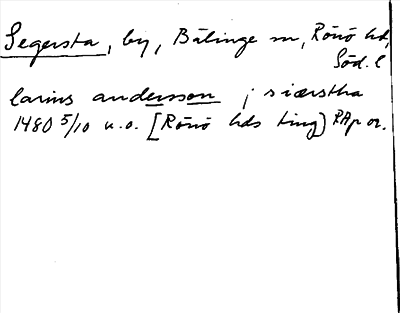 Segersta, by, Bälinge sn, Rönö hd,
Söd. l
larins andersson j siærstha
1480 5/10 u.o. [Rönö hds ting] RAp or.